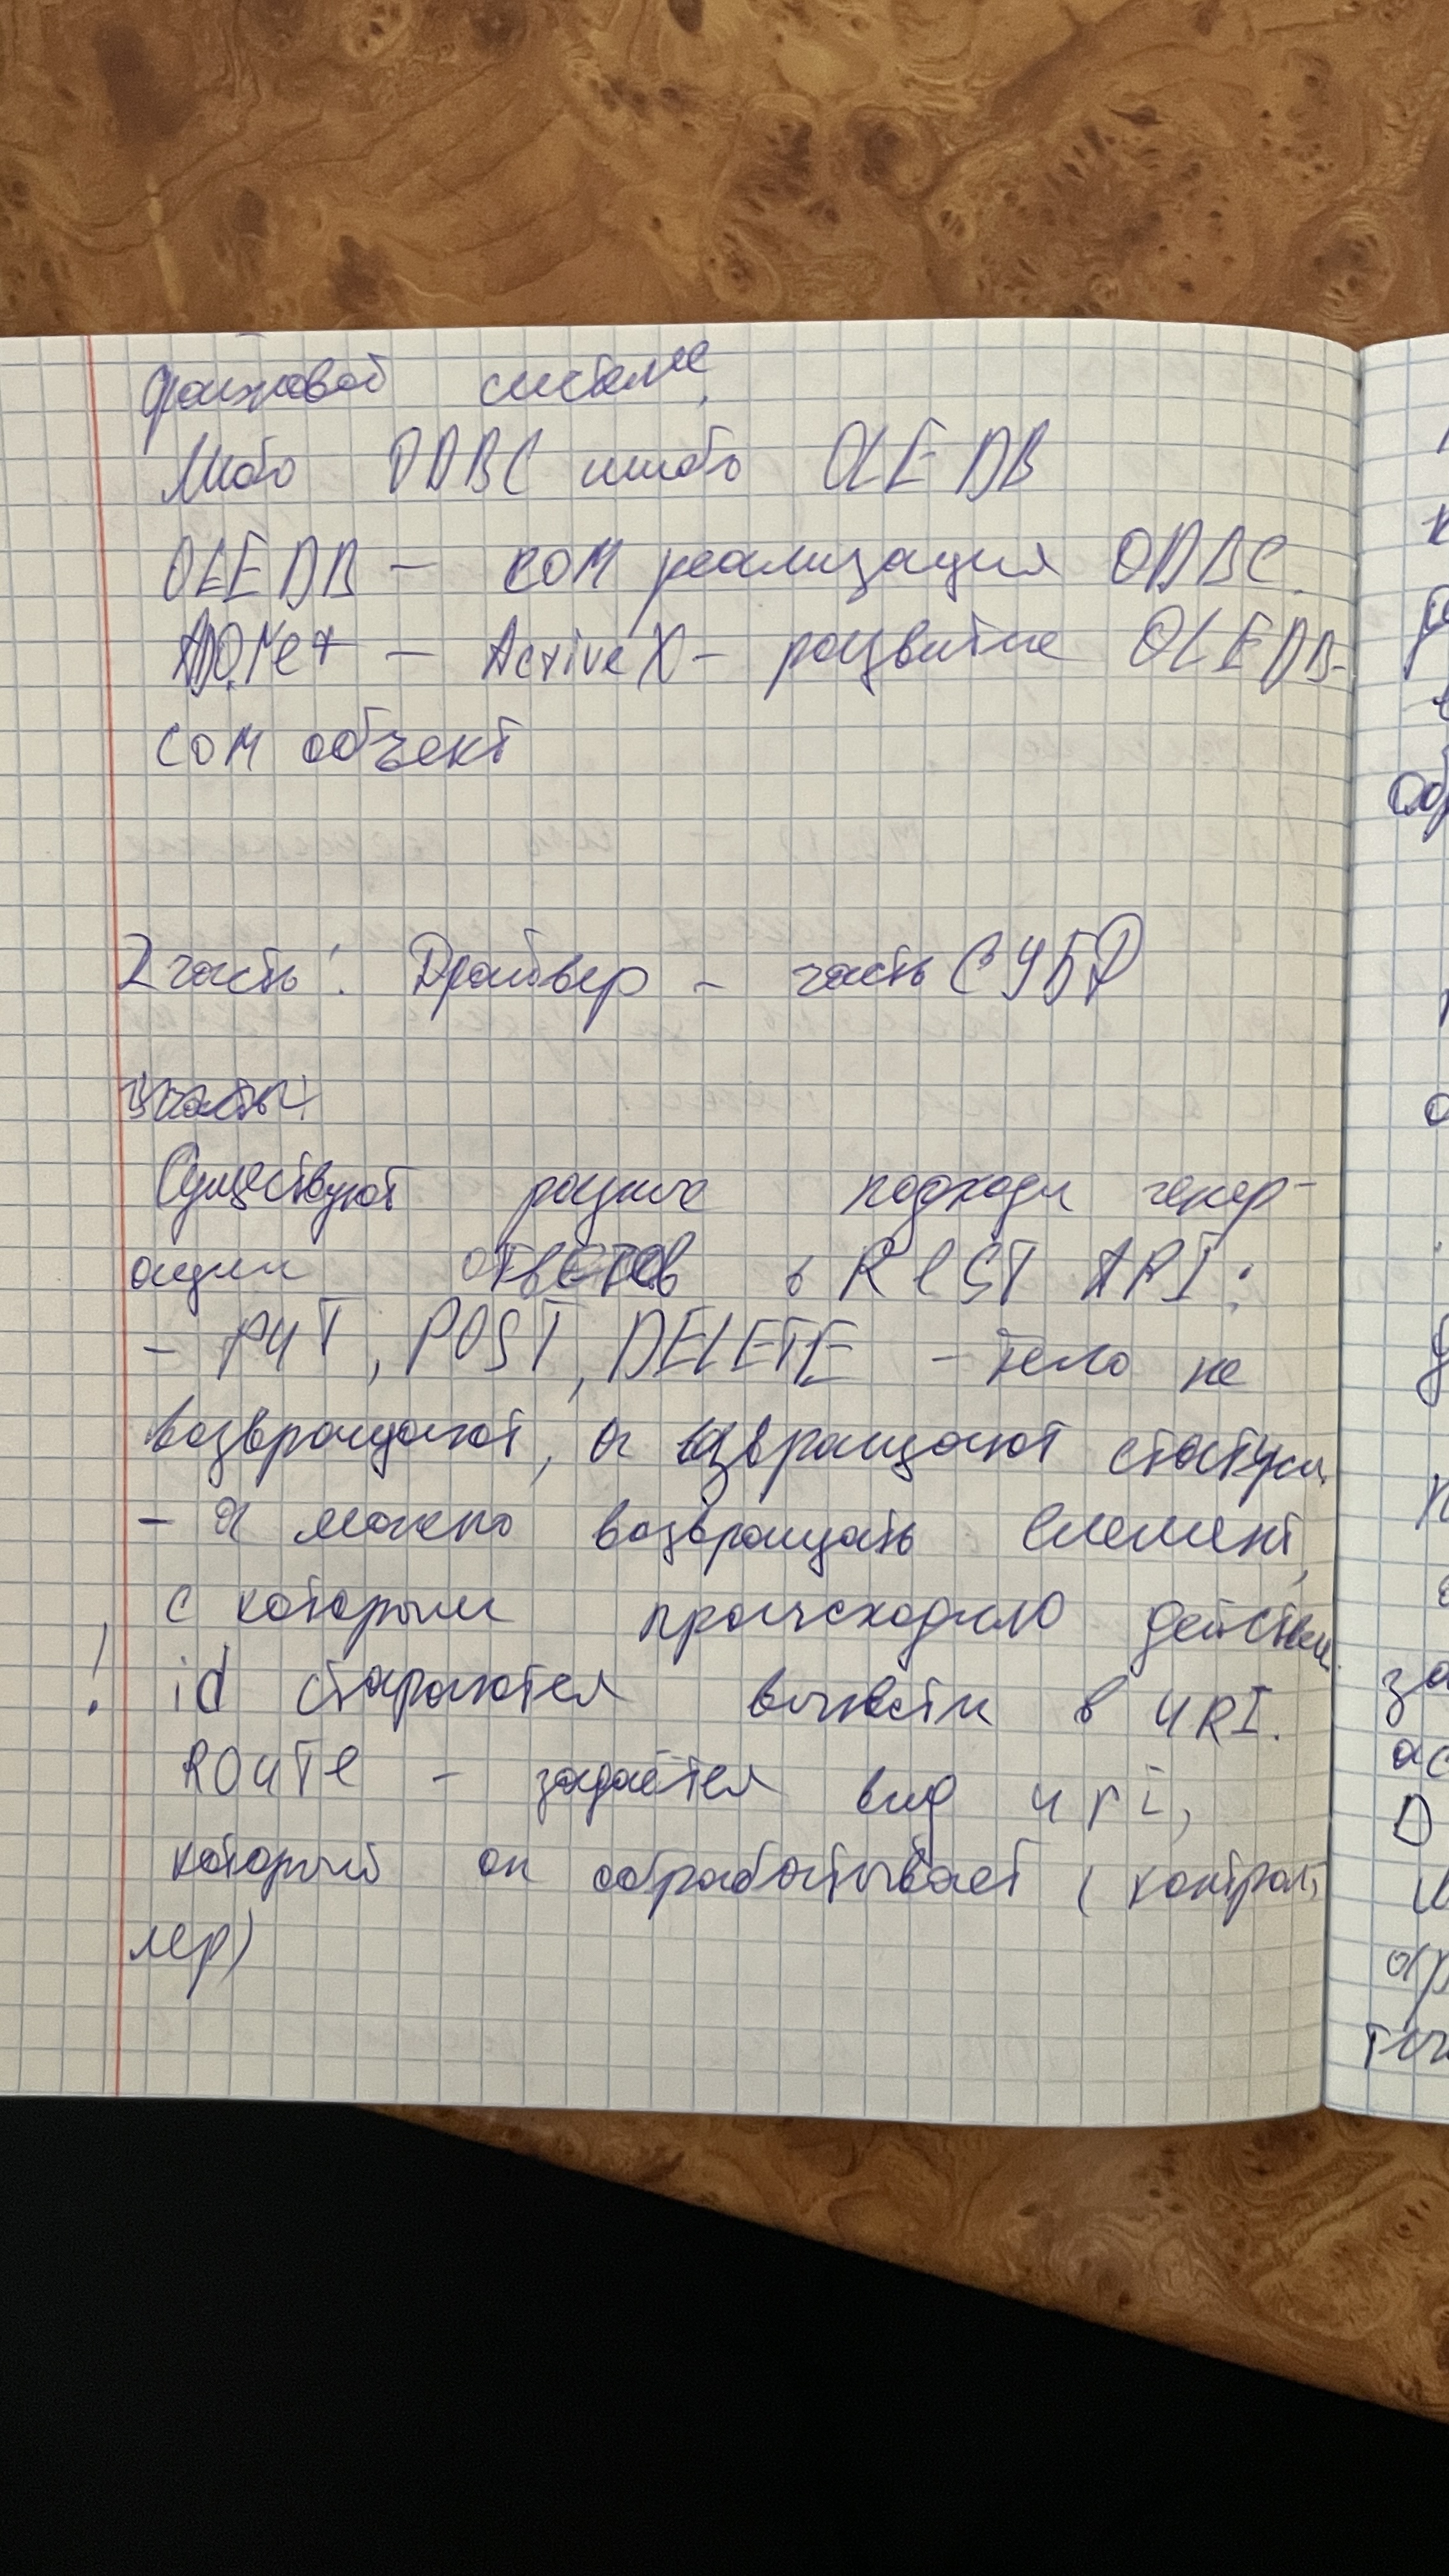 файловой системе.
Либо ODBC либо OLE DB
OLE DB — COM реализация ODBC.
ADO.Net — ActiveX — развитие OLEDB-
COM объект
2 часть: Драйвер - часть СУБД
3 часть:
Существуют разные подходы генер-
ации ответов в REST API:
- PUT, POST, DELETE - тело не
возвращают, а возвращают статусы.
- А можно возвращать элемент,
с которым происходило действие.
! id стараются вынести в URI.
Route - задаётся вид uri,
который он обрабатывает (контрол-
лер)